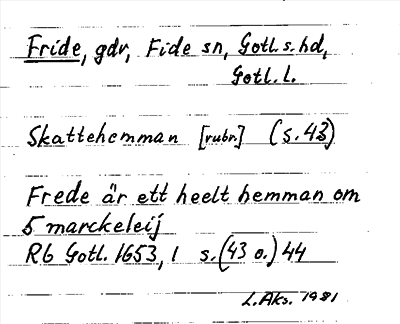 Fride, gdr, Fide sn, Gotl. s. hd,
Gotl. l.
Skattehemman [rubr.] (s. 43)
Frede är ett heelt hemman om
5 marckeleij
Rb Gotl. 1653, 1 s. (43 o.) 44
L. Aks. 1981